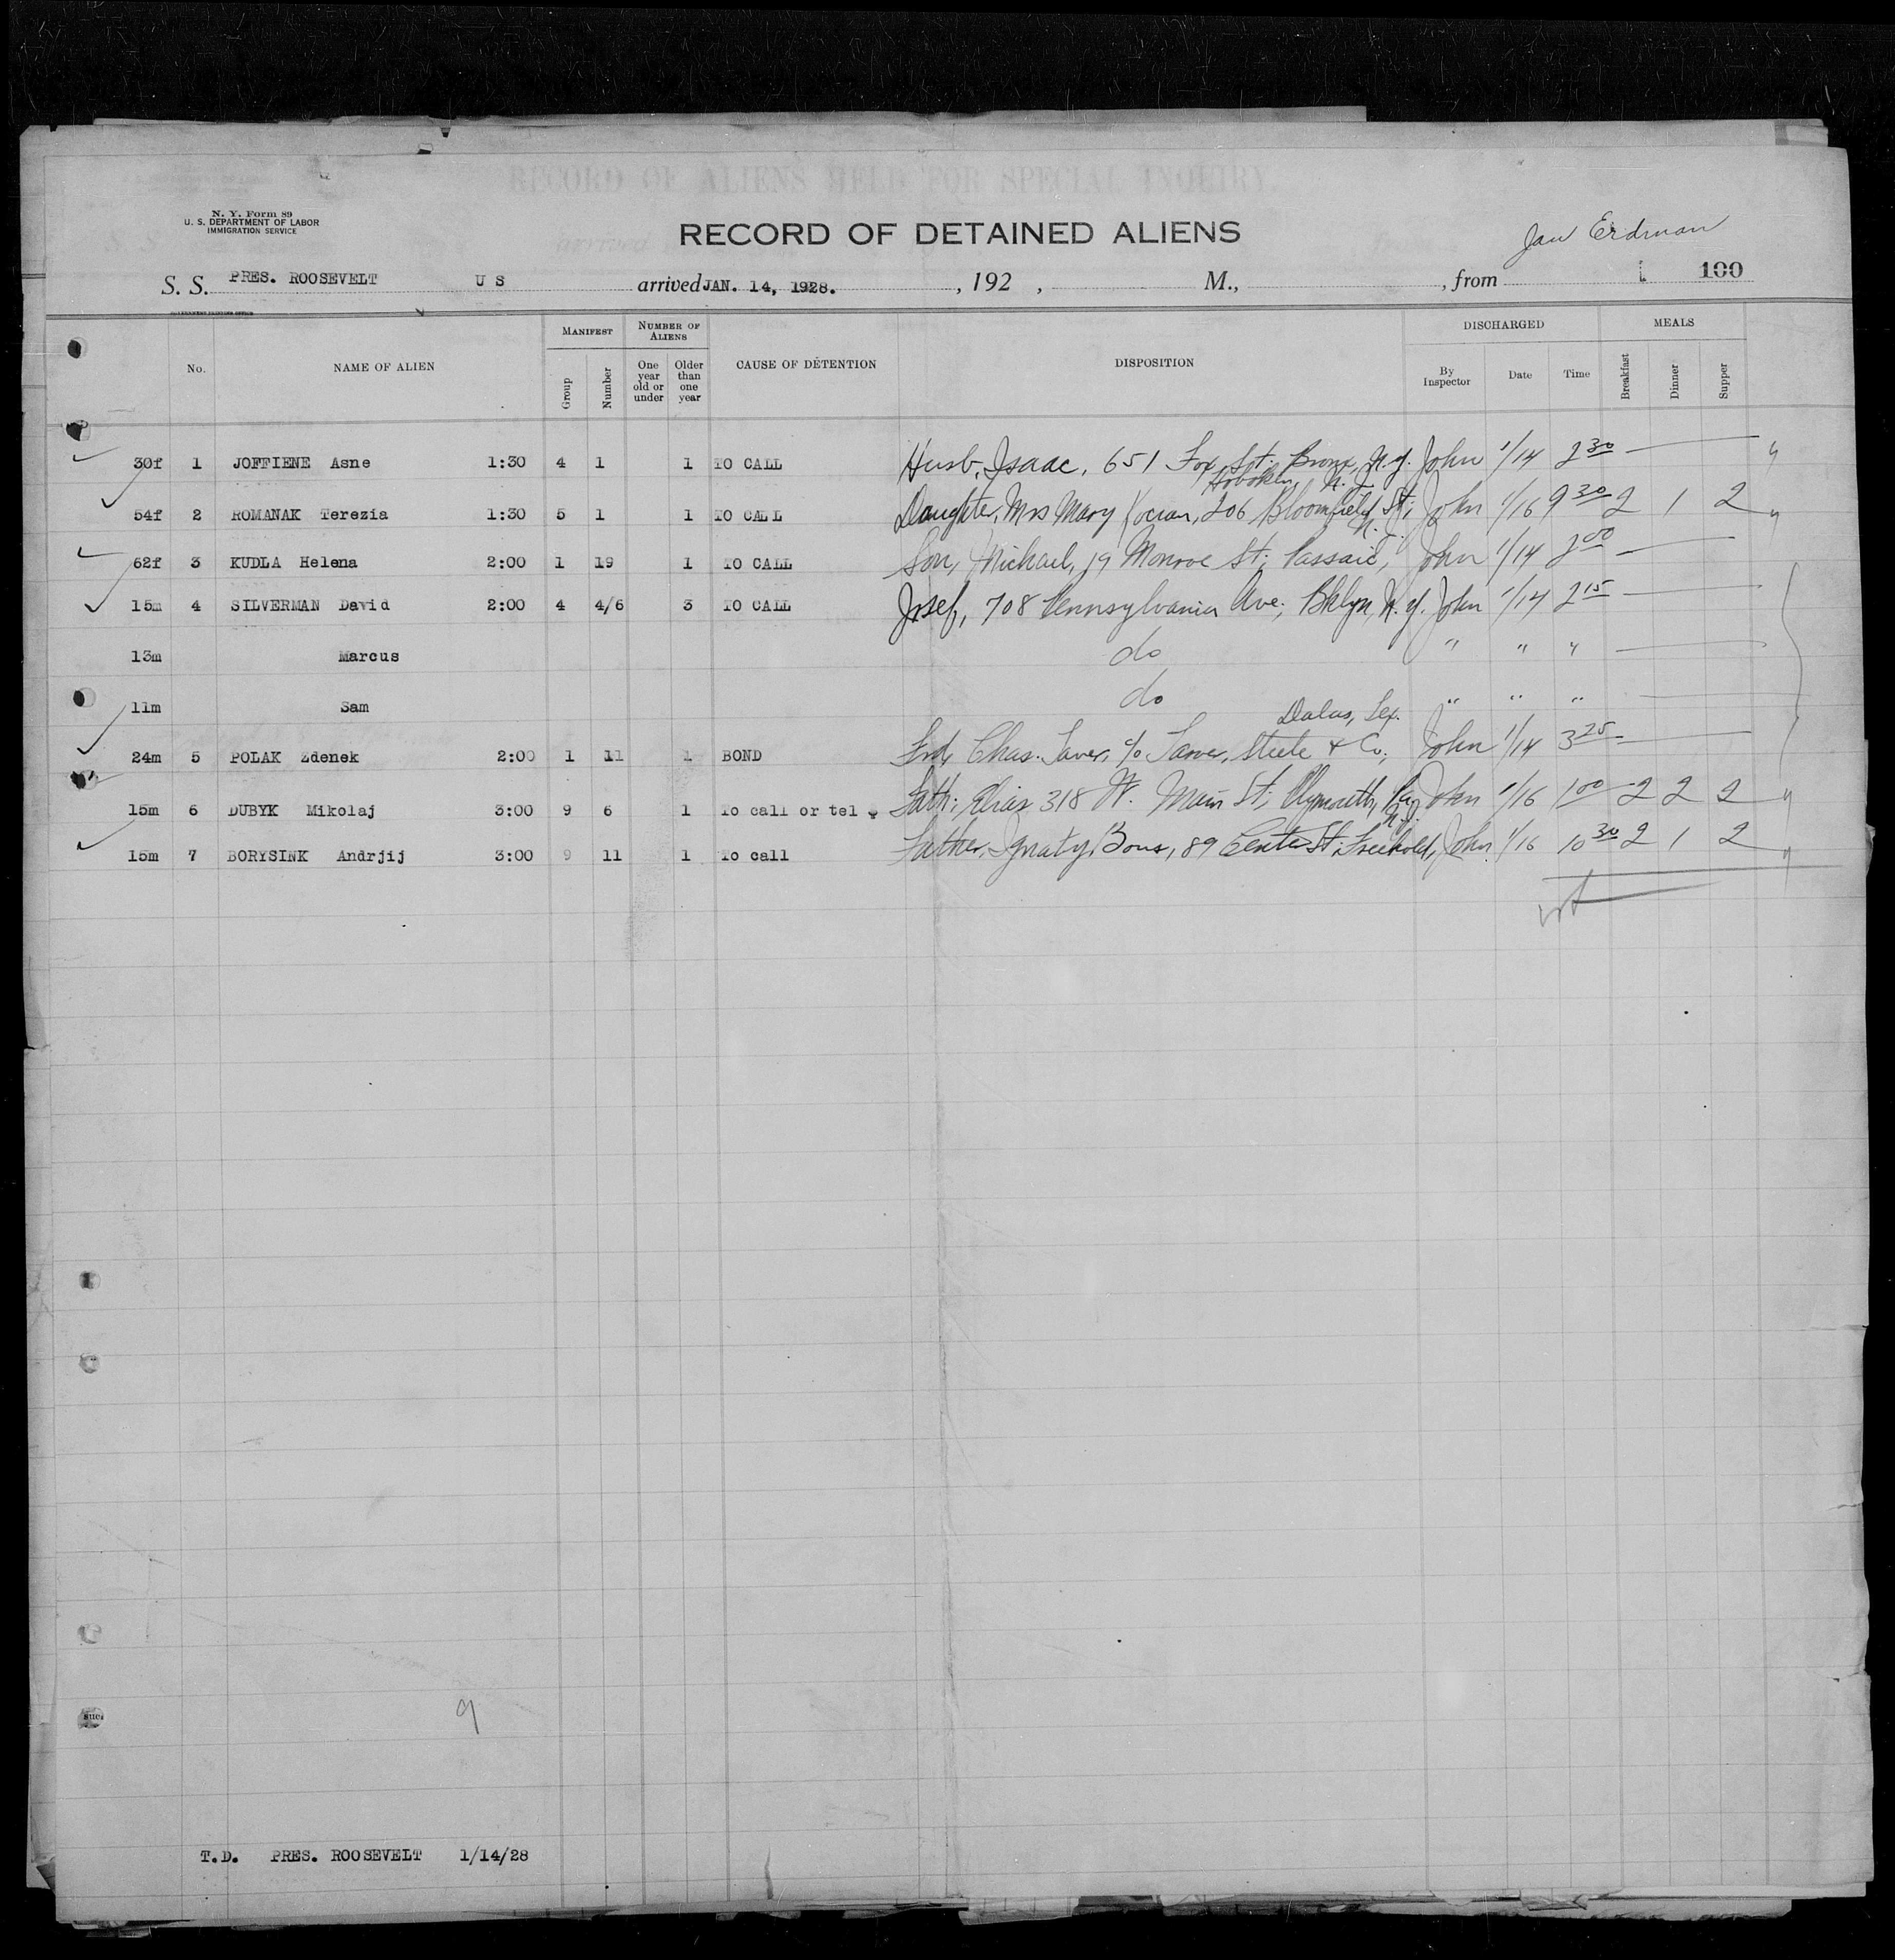 RECORD OF ALIENS HELD FOR SPECIAL INQUIRY.
N. Y. Form 89
U. S. DEPARTMENT OF LABOR
IMMIGRATION SERVICE
RECORD OF DETAINED ALIENS
Erdman
S. S. PRES. ROOSEVELT U S arrived JAN. 14, 1928. , 192 , M., , from 100
No. NAME OF ALIEN MANIFEST Group Number NUMBER OF ALIENS One year old or under Older than one year CAUSE OF DETENTION DISPOSITION DISCHARGED By Inspector Date Time MEALS Breakfast Dinner Supper
30f 1 JOFFIENE Asne 1:30 4 1 1 TO CALL Husb, Isaac, 651 Fox St. Bronx, N.Y. John 1/14 2 30
Hoboken, N. J.
54f 2 ROMANAK Terezia 1:30 5 1 1 TO CALL Daughter, Mrs Mary Kocian, 206 Bloomfield St; John 1/16 9 30 2 1 2 "
N. J.
62f 3 KUDLA Helena 2:00 1 19 1 TO CALL Son, Michael, 19 Monroe St; Passaic, John 1/14 2 00
15m 4 SILVERMAN David 2:00 4 4/6 3 TO CALL Josef, 708 Pennsylvania Ave; Bklyn, N.Y. John 1/14 2 15
13m Marcus do " " "
11m Sam do " " "
Dalas, Tex.
24m 5 POLAK Zdenek 2:00 1 11 1 BOND Frd, Chas. c/o Steele & Co; John 1/14 3 25
15m 6 DUBYK Mikolaj 3:00 9 6 1 To call or tel Fath: Elias 318 W. Main St; Plymouth, Pa; John 1/16 1 00 2 2 2 "
N.J.
15m 7 BORYSINK Andrjij 3:00 9 11 1 To call Father, Ignaty Bons, 89 Center St; Freehold, John 1/16 10 30 2 1 2 "
9
T.D. PRES. ROOSEVELT 1/14/28